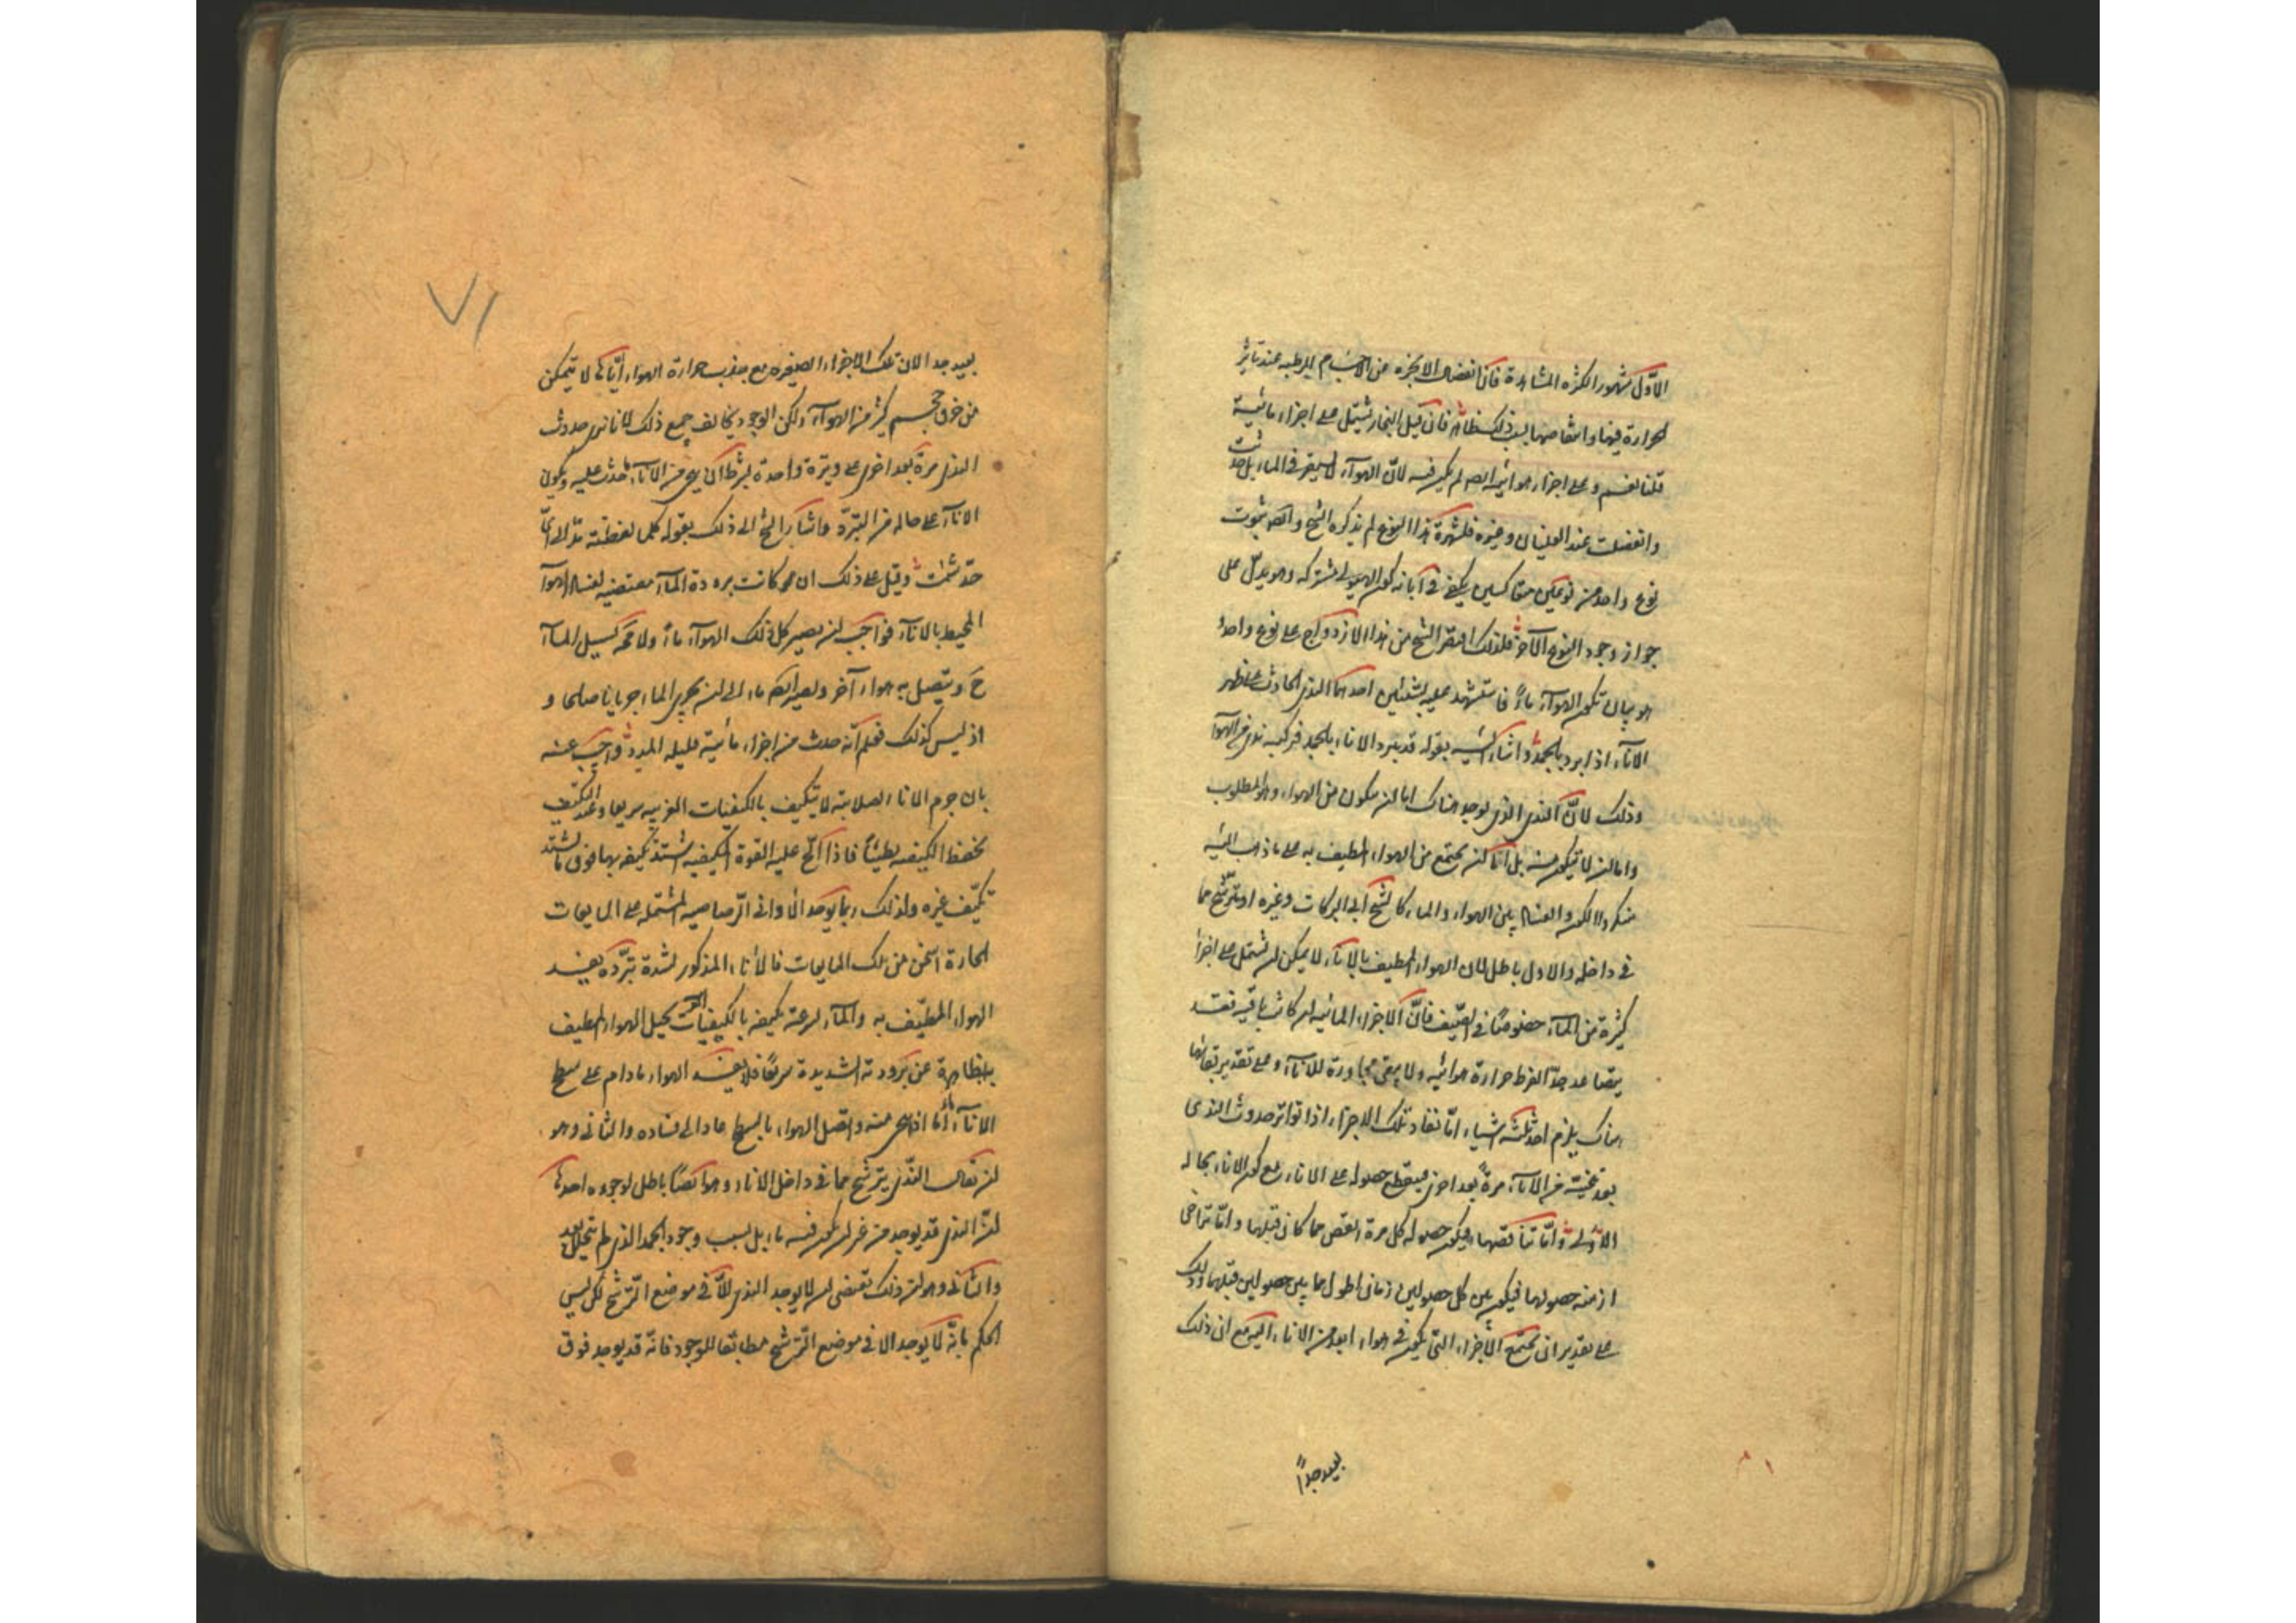 الاول مشهور لكثرة المشاهدة فان انفصال الابخرة من الاجسام الرطبة عند تاثر
الحرارة فيها وانتقاصها بسبب ذلك ظاهر فان قيل البخار يشتمل على اجزاء مائية
قلنا نعم وعلى اجزاء هوائية ايضا لم يكن فيه لان الهواء لا يستقر في الماء بل حدثت
وانفصلت عند الغليان وغيره فلشهرة هذا النوع لم يذكره الشيخ وايضا ثبوت
نوع واحد من نوعين متعاكسين يكفي في ابانة كون الهيولى مشتركة وهو يدل على
جواز وجود النوع الآخر فلذلك اقتصر الشيخ من هذا الازدواج على نوع واحد
هو بيان تكون الهواء ماء فاستشهد عليه بشيئين احدهما الندى الحادث على ظهر
الاناء اذا برد بالجمد واشار اليه بقوله قد يبرد الاناء بالجمد فركبه ندى من الهواء
وذلك لان الندى الذي يوجد هناك اما ان يتكون من الهواء وهو المطلوب
واما ان لا يتكون منه بل اما ان يجتمع من الهواء المطيف به على ما ذهب اليه
منكروا الكون والفساد بين الهواء والماء كالشيخ ابي البركات وغيره او يترشح مما
في داخله والاول باطل لان الهواء المطيف بالاناء لا يمكن ان يشتمل على اجزاء
كثيرة من الماء خصوصا في الصيف فان الاجزاء المائية ان كانت باقية فقد
يتصاعد جدا لفرط حرارة هوائية ولا يبقى مجاورة للاناء وعلى تقدير بقائها
هناك يلزم احد ثلثة اشياء اما نفاد تلك الاجزاء اذا تواتر حدوث الندى
بعد تنحيته من الاناء مرة بعد اخرى فينقطع حصوله على الاناء مع كون الاناء بحاله
الاولى واما تناقصها فيكون حصوله كل مرة انقص مما كان قبلها واما تراخى
ازمنة حصولها فيكون بين كل حصولين زمان اطول مما بين حصولين قبلهما وذلك
على تقدير ان يجتمع الاجزاء التي يكون في هواء ابعد من الاناء اليه مع ان ذلك
بعيد جدا
٧١
بعيد جدا لان تلك الاجزاء الصغيرة مع جذب حرارة الهواء اياها لا يتمكن
من خرق حجم كثير من الهواء ولكن الوجود يخالف جميع ذلك لانا نرى حدوث
الندى مرة بعد اخرى على وتيرة واحدة بشرط ان ينحى من الاناء ما حدث عليه ويكون
الاناء على حاله من التبرد واشار الشيخ الى ذلك بقوله كلما لقطته مد الى اي
حد شئت وقيل على ذلك ان لو كانت برودة الماء مقتضية لفساد الهواء
المحيط بالاناء فواجب ان يصير كل ذلك الهواء ماء ولا محة لسيل الماء
ح ويتصل به هواء آخر ويصير ايضا ماء الى ان يجري الماء جريانا صالحا و
اذ ليس كذلك فعلم انه حدث من اجزاء مائية قليلة المدد واجيب عنه
بان جرم الاناء لصلابته لا يتكيف بالكيفيات الغريبة سريعا وعند التكيف
يحفظ الكيفية بطيئا فاذا الح عليه القوة المكيفة اشتد تكيفه بها فوق ما يشتد
تكيف غيره ولذلك ربما يوجد الاواني الرصاصية المشتملة على المايعات
الحارة اسخن من تلك المايعات فالاناء المذكور لشدة تبرده يفسد
الهواء المطيف به والماء لسرعة تكيفه بالكيفيات يحيل الهواء المطيف
بظاهره عن برودته الشديدة سريعا فلا يفسد الهواء ما دام على سطح
الاناء اما اذا نحى عنه واتصل الهواء بالسطح عاد الى فساده والثاني وهو
ان يقال الندى يترشح مما في داخل الاناء وهو ايضا باطل لوجوه احدها
ان الندى قد يوجد من غير ان يكون فيه ماء بل بسبب وجود الجمد الذي لم يتحلل بعد
والثاني وهو ان ذلك يقتضي ان لا يوجد الندى الا في موضع الترشح لكن ليس
الحكم بانه لا يوجد الا في موضع الترشح مطابقا للوجود فانه قد يوجد فوق